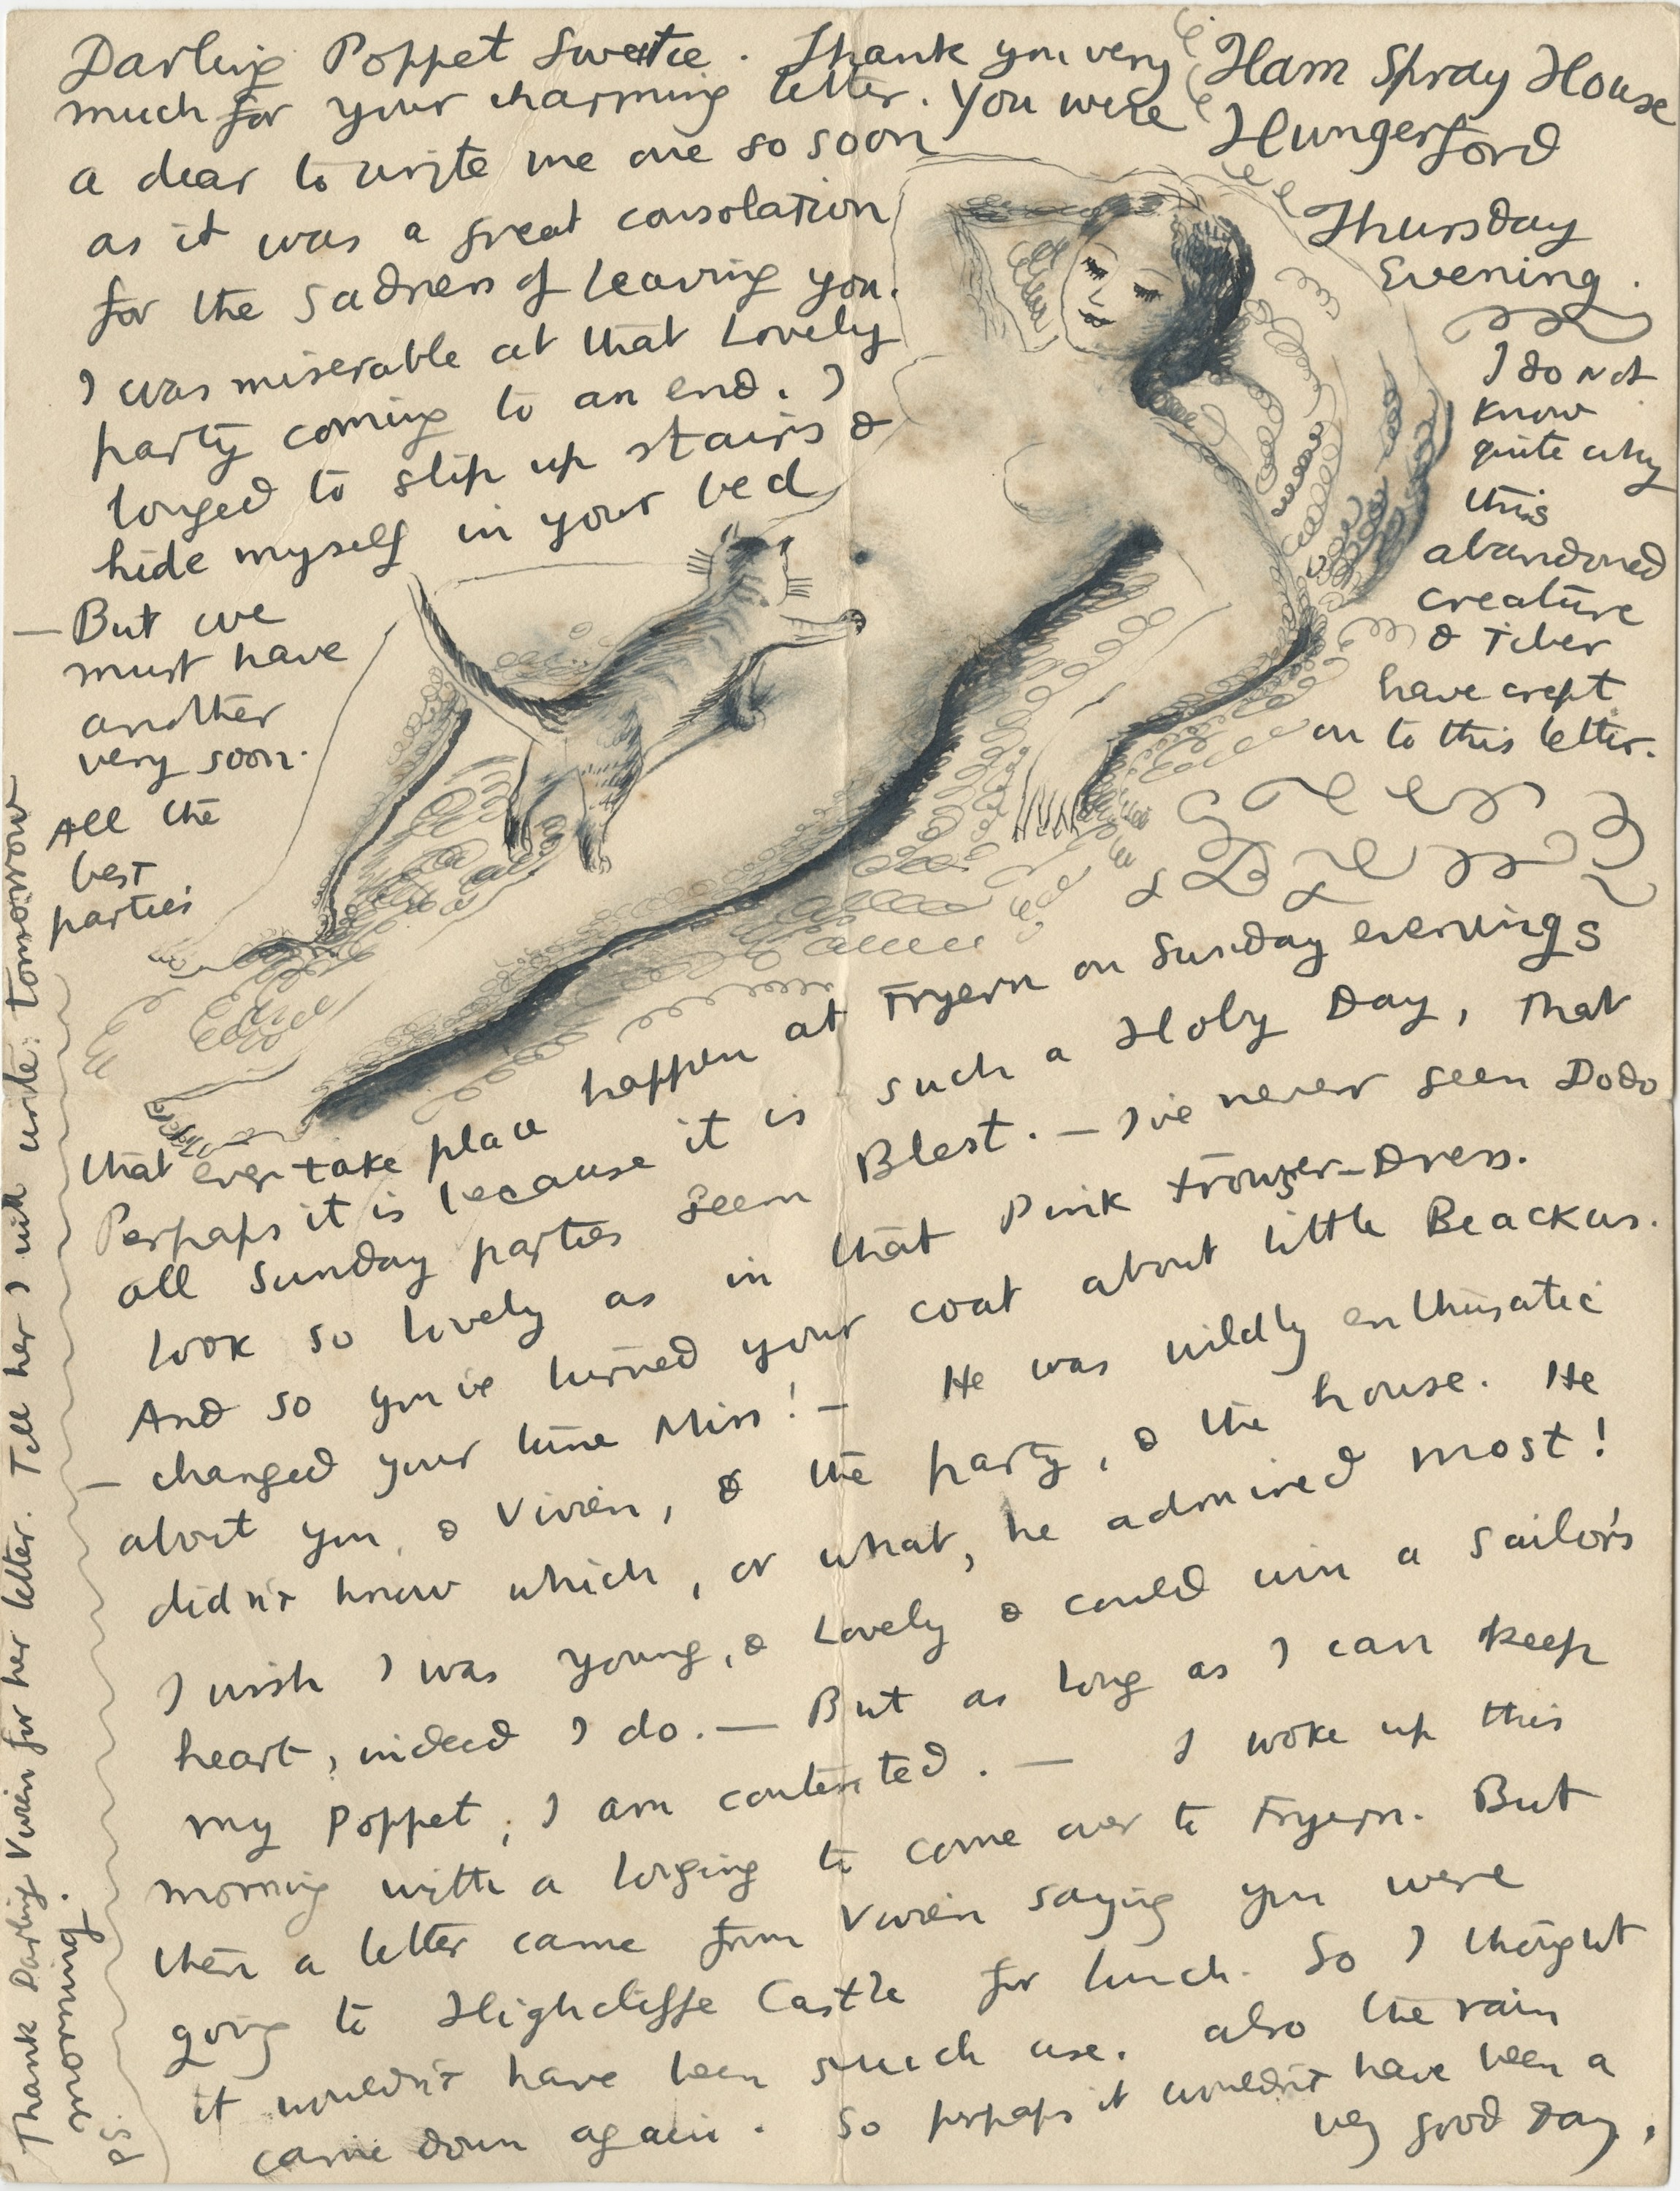 Ham Spray House
Hungerford
Thursday
Evening.
Darling Poppet Sweetie. Thank you very
much for your charming letter. You were
a dear to write me one so soon
as it was a great consolation
for the sadness of leaving you.
I was miserable at that Lovely
party coming to an end. I
longed to slip up stairs &
hide myself in your bed
— But we
must have
another
very soon.
All the
best
parties
that ever take place happen at Fryern on Sunday evenings
Perhaps it is because it is such a Holy Day, that
all Sunday parties seem Blest. — I've never seen Dodo
look so lovely as in that Pink Trouzer-Dress.
And so you've turned your coat about little Beackus.
— changed your tune Miss! — He was wildly enthusatic
about you, & Vivien, & the party, & the house. He
didn't know which, or what, he admired most!
I wish I was young, & Lovely & could win a sailor's
heart, indeed I do. — But as long as I can keep
my Poppet, I am contented. — I woke up this
morning with a longing to come over to Fryern. But
then a letter came from Vivien saying you were
going to Highcliffe Castle for lunch. So I thought
it wouldn't have been much use. also the rain
came down again. So perhaps it wouldn't have been a
very good day.
I do not
know
quite why
this
abandoned
creature
& Tiber
have crept
on to this letter.
PS. Thank Darling Vivien for her letter. Tell her I will write tomorrow
morning.